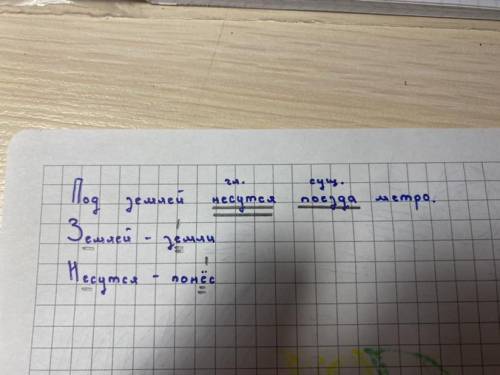 гл. сущ.
Под землей несутся поезда метро.
Землей - земли
Несутся - понёс